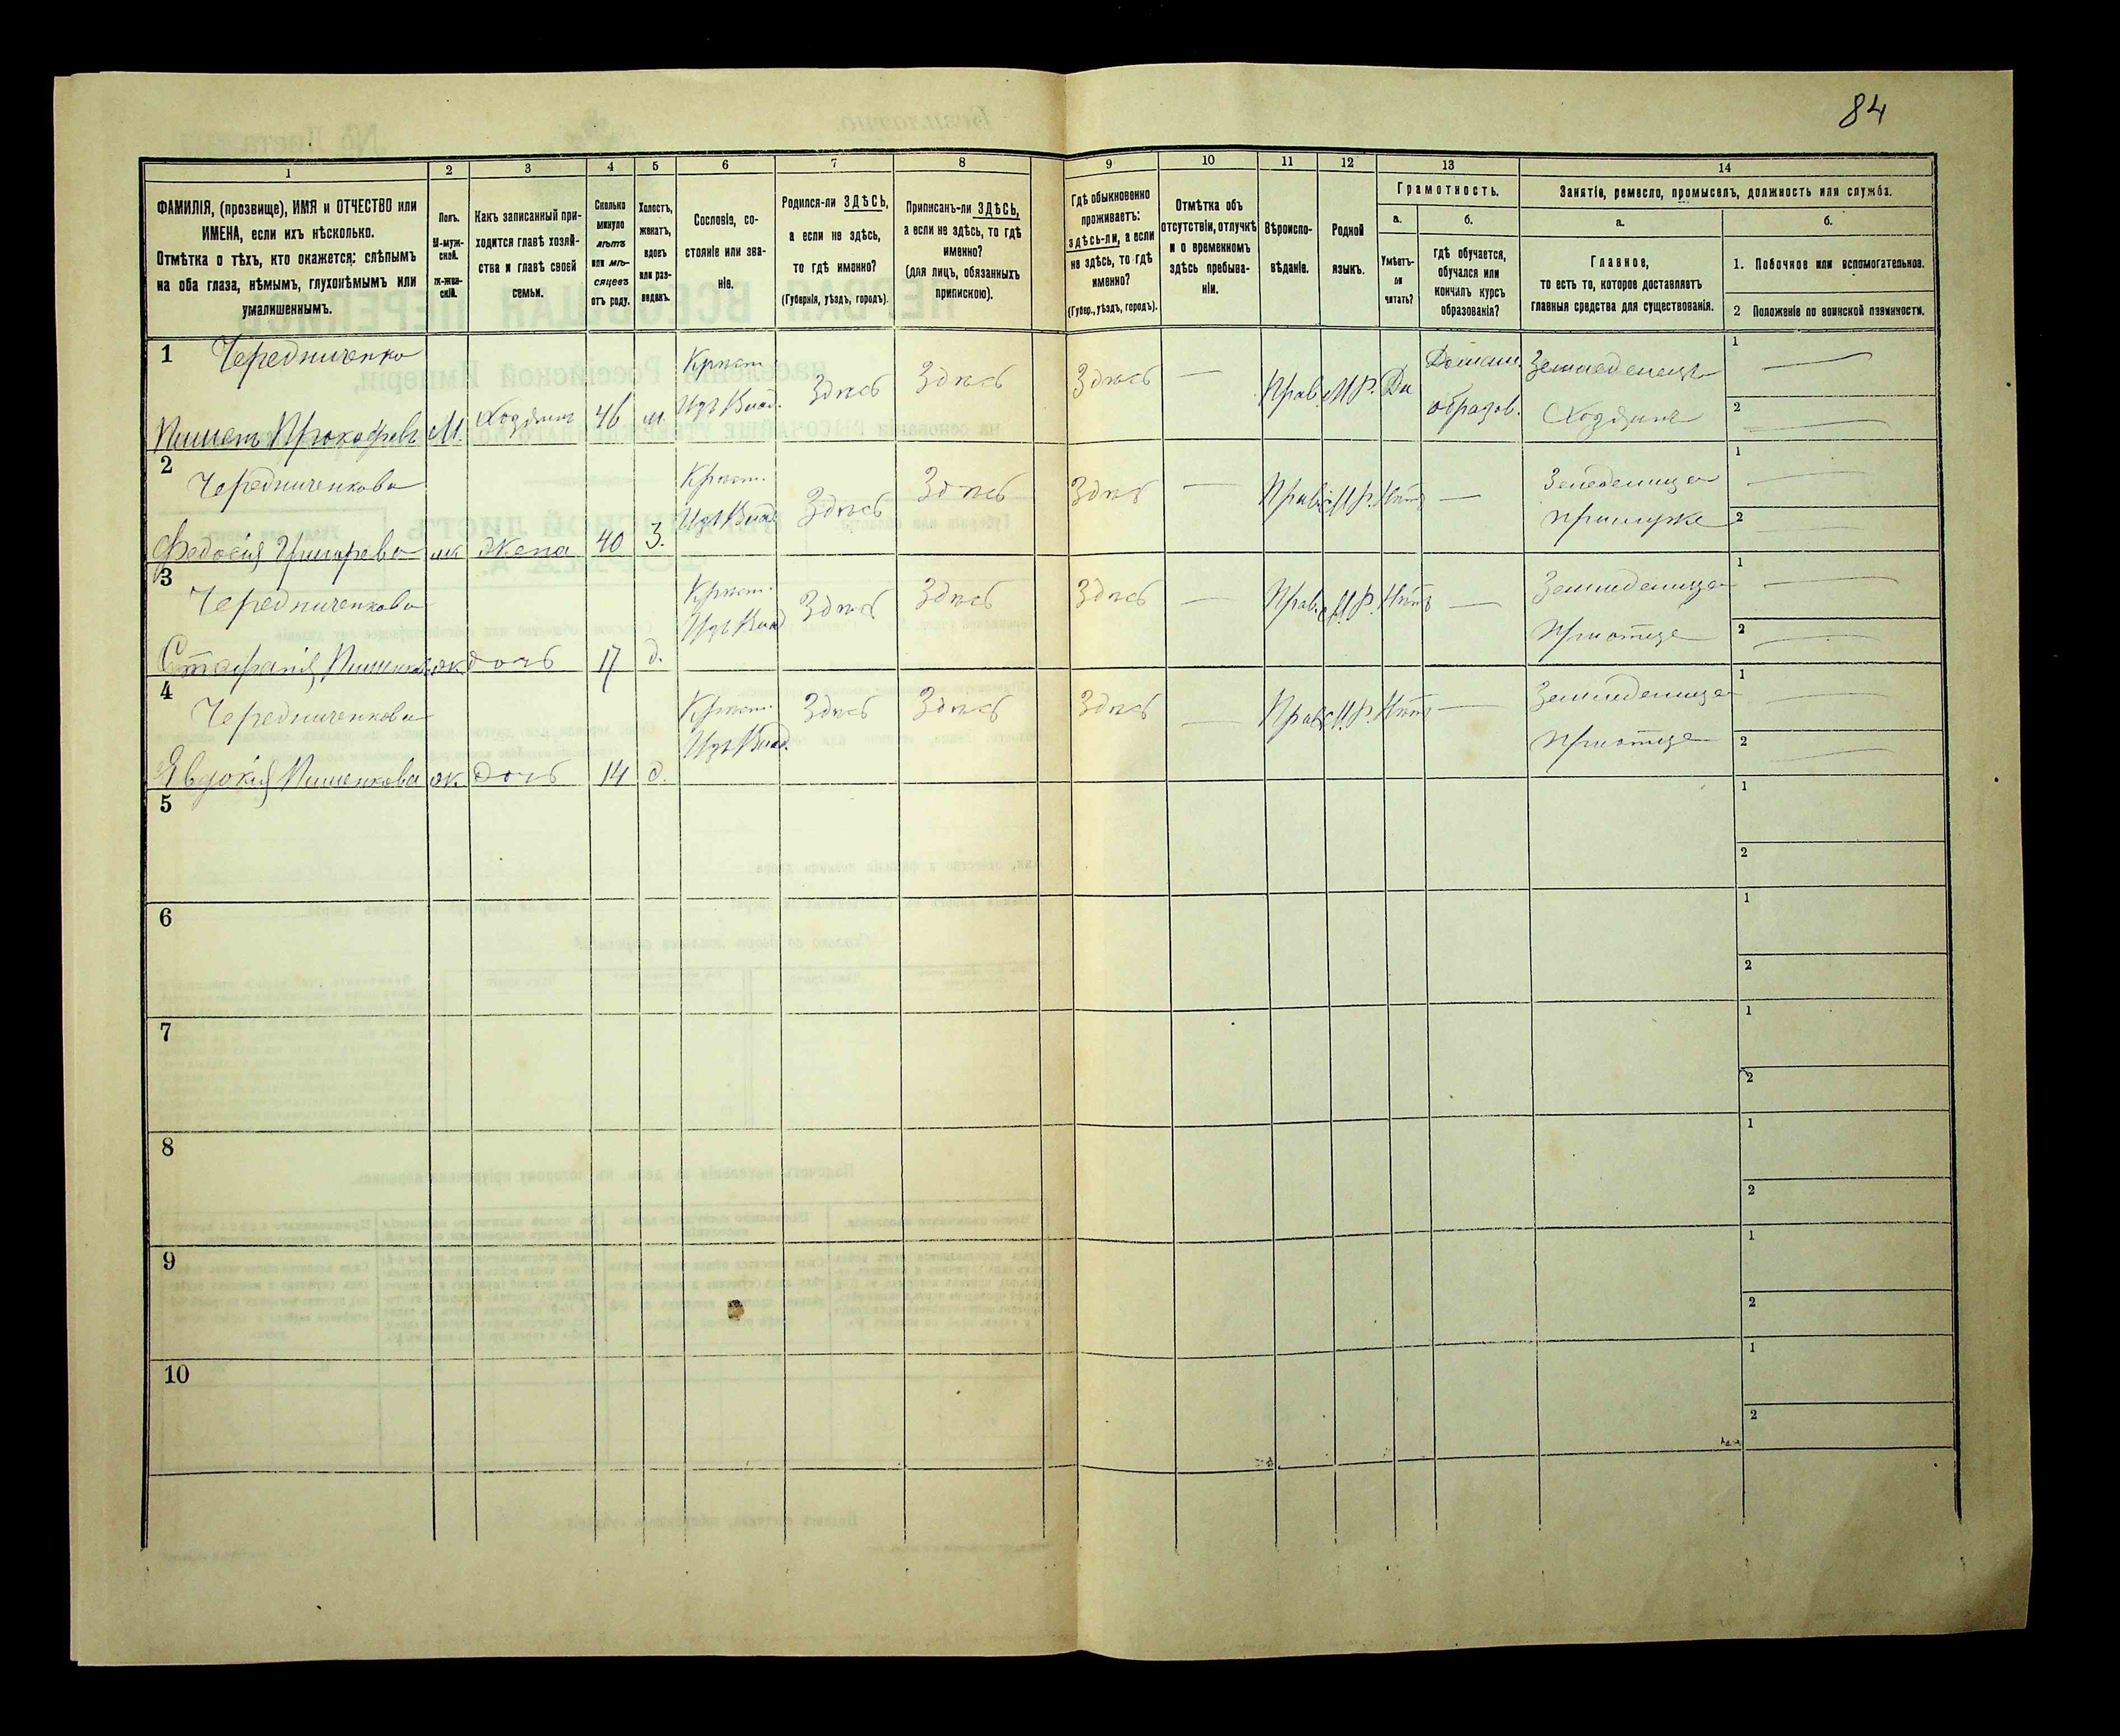 84
1 2 3 4 5 6 7 8 9 10 11 12 13 14
ФАМИЛІЯ, (прозвище), ИМЯ и ОТЧЕСТВО или
ИМЕНА, если ихъ нѣсколько.
Отмѣтка о тѣхъ, кто окажется: слѣпымъ
на оба глаза, нѣмымъ, глухонѣмымъ или
умалишеннымъ.
Полъ.
М-муж-
ской.
Ж-жен-
скій.
Какъ записанный при-
ходится главѣ хозяй-
ства и главѣ своей
семьи.
Сколько
минуло
лѣтъ
или мѣ-
сяцевъ
отъ роду.
Холостъ,
женатъ,
вдовъ
или раз-
веденъ.
Сословіе, со-
стояніе или зва-
ніе.
Родился-ли ЗДѢСЬ,
а если не здѣсь,
то гдѣ именно?
(Губернія, уѣздъ, городъ).
Приписанъ-ли ЗДѢСЬ,
а если не здѣсь, то гдѣ
именно?
(для лицъ, обязанныхъ
припискою).
Гдѣ обыкновенно
проживаетъ:
здѣсь-ли, а если
не здѣсь, то гдѣ
именно?
(Губер., уѣздъ, городъ).
Отмѣтка объ
отсутствіи, отлучкѣ
и о временномъ
здѣсь пребыва-
ніи.
Вѣроиспо-
вѣданіе.
Родной
языкъ.
Грамотность.
а.
Умѣетъ-
ли
читать?
б.
гдѣ обучается,
обучался или
кончилъ курсъ
образованія?
Занятіе, ремесло, промыселъ, должность или служба.
а.
Главное,
то есть то, которое доставляетъ
главныя средства для существованія.
б.
1. Побочное или вспомогательное.
2 Положеніе по воинской повинности.
1 Чередниченко
Пименъ Прокофьевъ М. Хозяинъ 46 ж.
Крест.
Изъ Влад.
Здѣсь Здѣсь Здѣсь — Прав. М.Р. Да
Домашн.
образов.
Земледелецъ
Хозяинъ
1 —
2 —
2 Чередниченкова
Федосія Григорьева ж Жена 40 З.
Крест.
Изъ Влад.
Здѣсь Здѣсь Здѣсь — Прав. М.Р. Нѣтъ —
при мужѣ
1 —
2 —
3 Чередниченкова
Стефанія Пименова ж дочь 17 д.
Крест.
Изъ Влад.
Здѣсь Здѣсь Здѣсь — Прав. М.Р. Нѣтъ —
Земледелица
При отце
1 —
2 —
4 Чередниченкова
Явдокія Пименкова ж. дочь 14 д.
Крест.
Изъ Влад.
Здѣсь Здѣсь Здѣсь — Прав. М.Р. Нѣтъ —
Земледелица
При отце
1 —
2 —
5
1
2
6
1
2
7
1
2
8
1
2
9
1
2
10
1
2